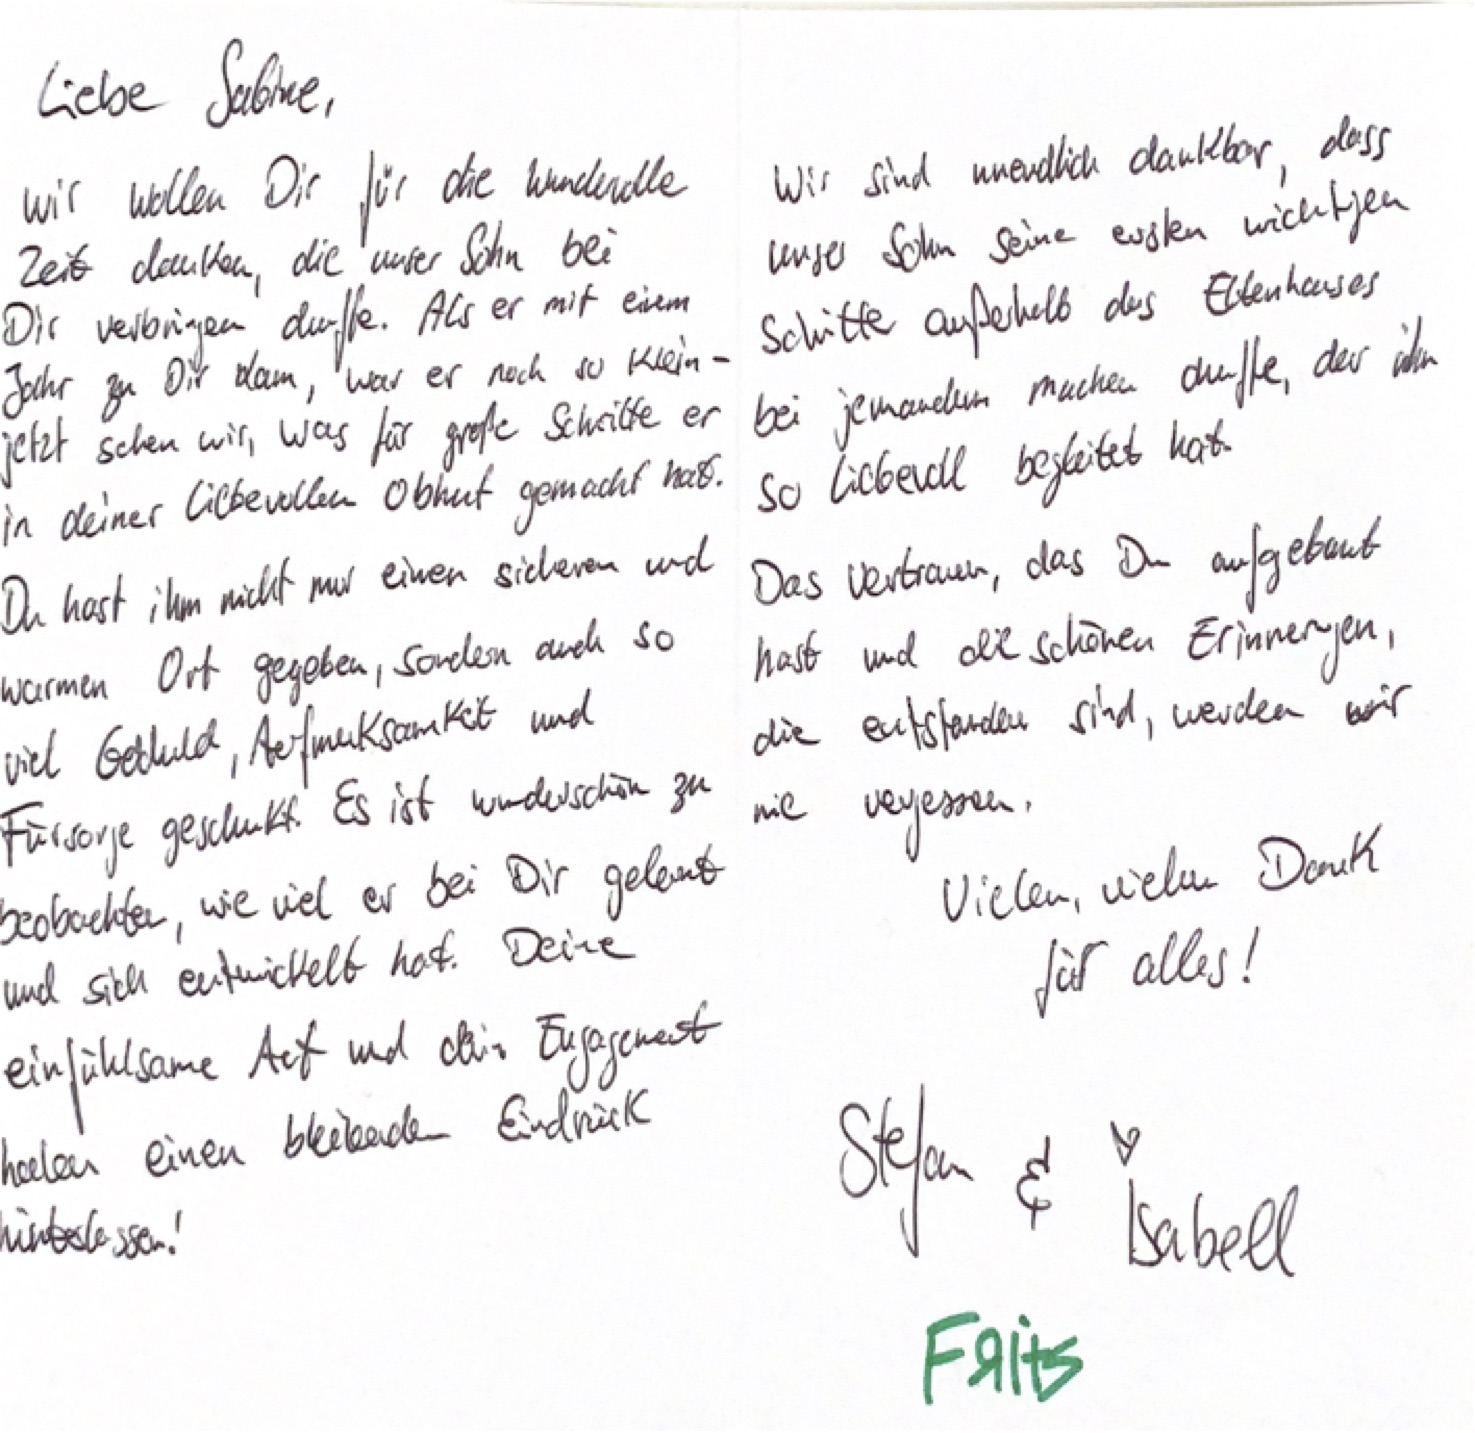 Liebe Sabine,
wir wollen Dir für die wundervolle
Zeit danken, die unser Sohn bei
Dir verbringen durfte. Als er mit einem
Jahr zu Dir kam, war er noch so klein -
jetzt sehen wir, was für große Schritte er
in deiner liebevollen Obhut gemacht hat.
Du hast ihm nicht nur einen sicheren und
warmen Ort gegeben, sondern auch so
viel Geduld, Aufmerksamkeit und
Fürsorge geschenkt. Es ist wunderschön zu
beobachten, wie viel er bei Dir gelernt
und sich entwickelt hat. Deine
einfühlsame Art und dein Engagement
haben einen bleibenden Eindruck
hinterlassen!
Wir sind unendlich dankbar, dass
unser Sohn seine ersten wichtigen
Schritte außerhalb des Elternhauses
bei jemandem machen durfte, der ihn
so liebevoll begleitet hat.
Das Vertrauen, das Du aufgebaut
hast und die schönen Erinnerungen,
die entstanden sind, werden wir
nie vergessen.
Vielen, vielen Dank
für alles!
Stefan & Isabell
Frits